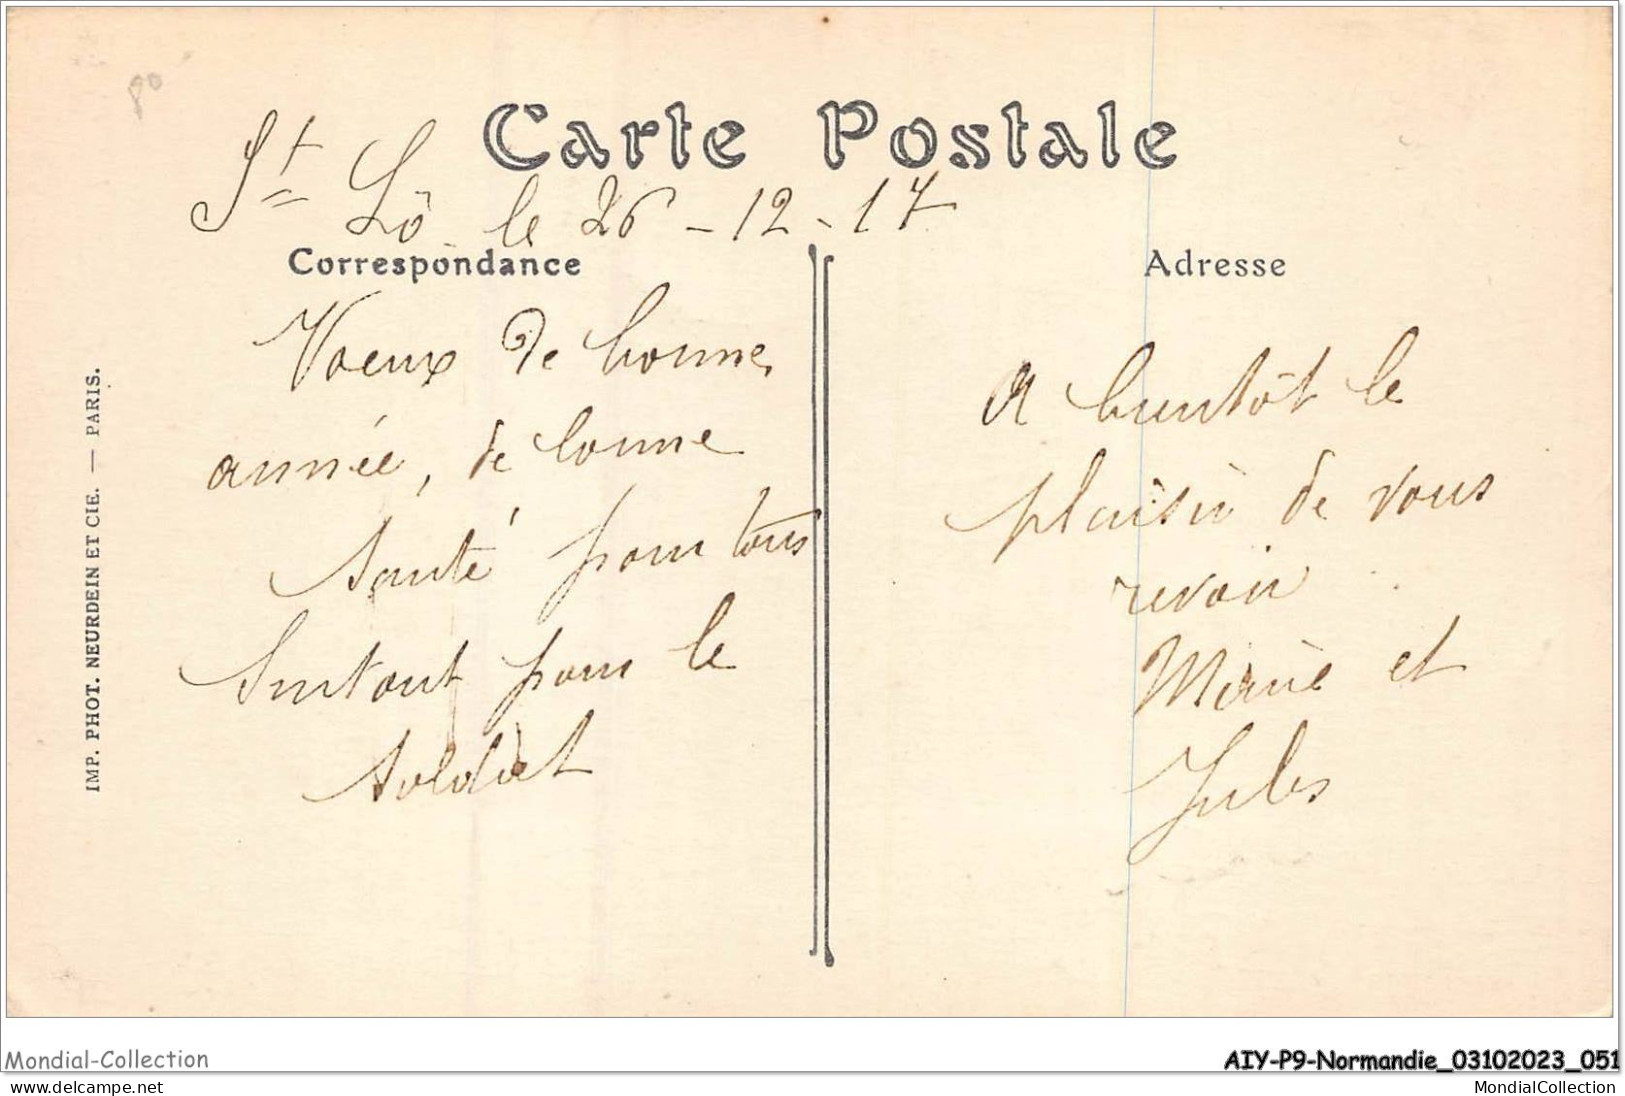 80
Carte Postale
St Lô le 26-12-17
Correspondance
Voeux de bonne
année, de bonne
santé pour tous
Surtout pour le
soldat
Adresse
A bientôt le
plaisir de vous
revoir
Marie et
Jules
IMP. PHOT. NEURDEIN ET CIE. — PARIS.
Mondial-Collection
AIY-P9-Normandie_03102023_051
www.delcampe.net
MondialCollection